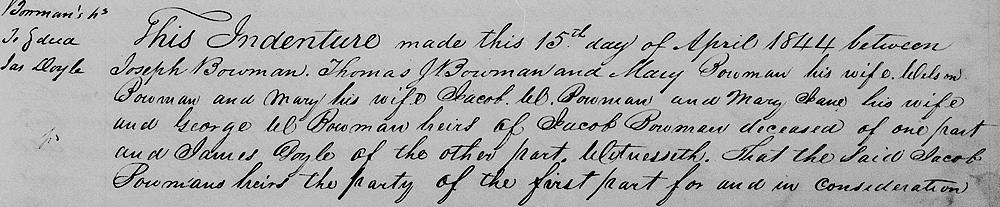 Bowman's hs
To } deed
Jas Doyle
This Indenture made this 15th day of April 1844 between
Joseph Bowman. Thomas J Bowman and Mary Bowman his wife. Wilson
Bowman and Mary his wife Jacob. W. Bowman and Mary Jane his wife
and George W Bowman heirs of Jacob Bowman deceased of one part
and James Doyle of the other part. Witnesseth. That the said Jacob
Bowmans heirs the party of the first part for and in consideration